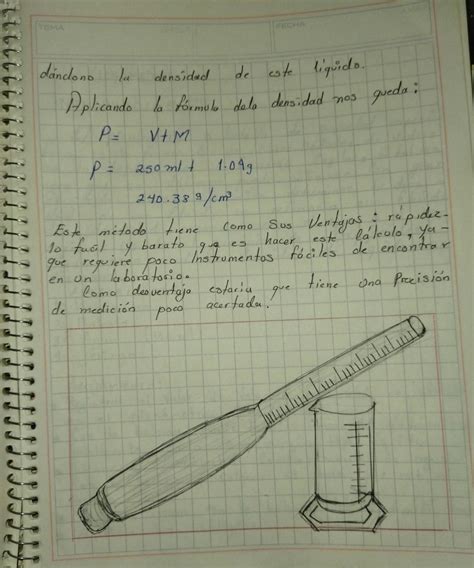 TEMA
FECHA
dándono la densidad de este líquido.
Aplicando la fórmula dela densidad nos queda:
P= V+M
P= 250 ml + 1.04g
240.38 g/cm³
Este método tiene como sus Ventajas: rápidez-
lo fuál y barato que es hacer este cálculo, ya-
que requiere poco instrumentos fáciles de encontrar
en un laboratorio.
Como desventaja estaria que tiene una Precisión
de medición poco acertada.